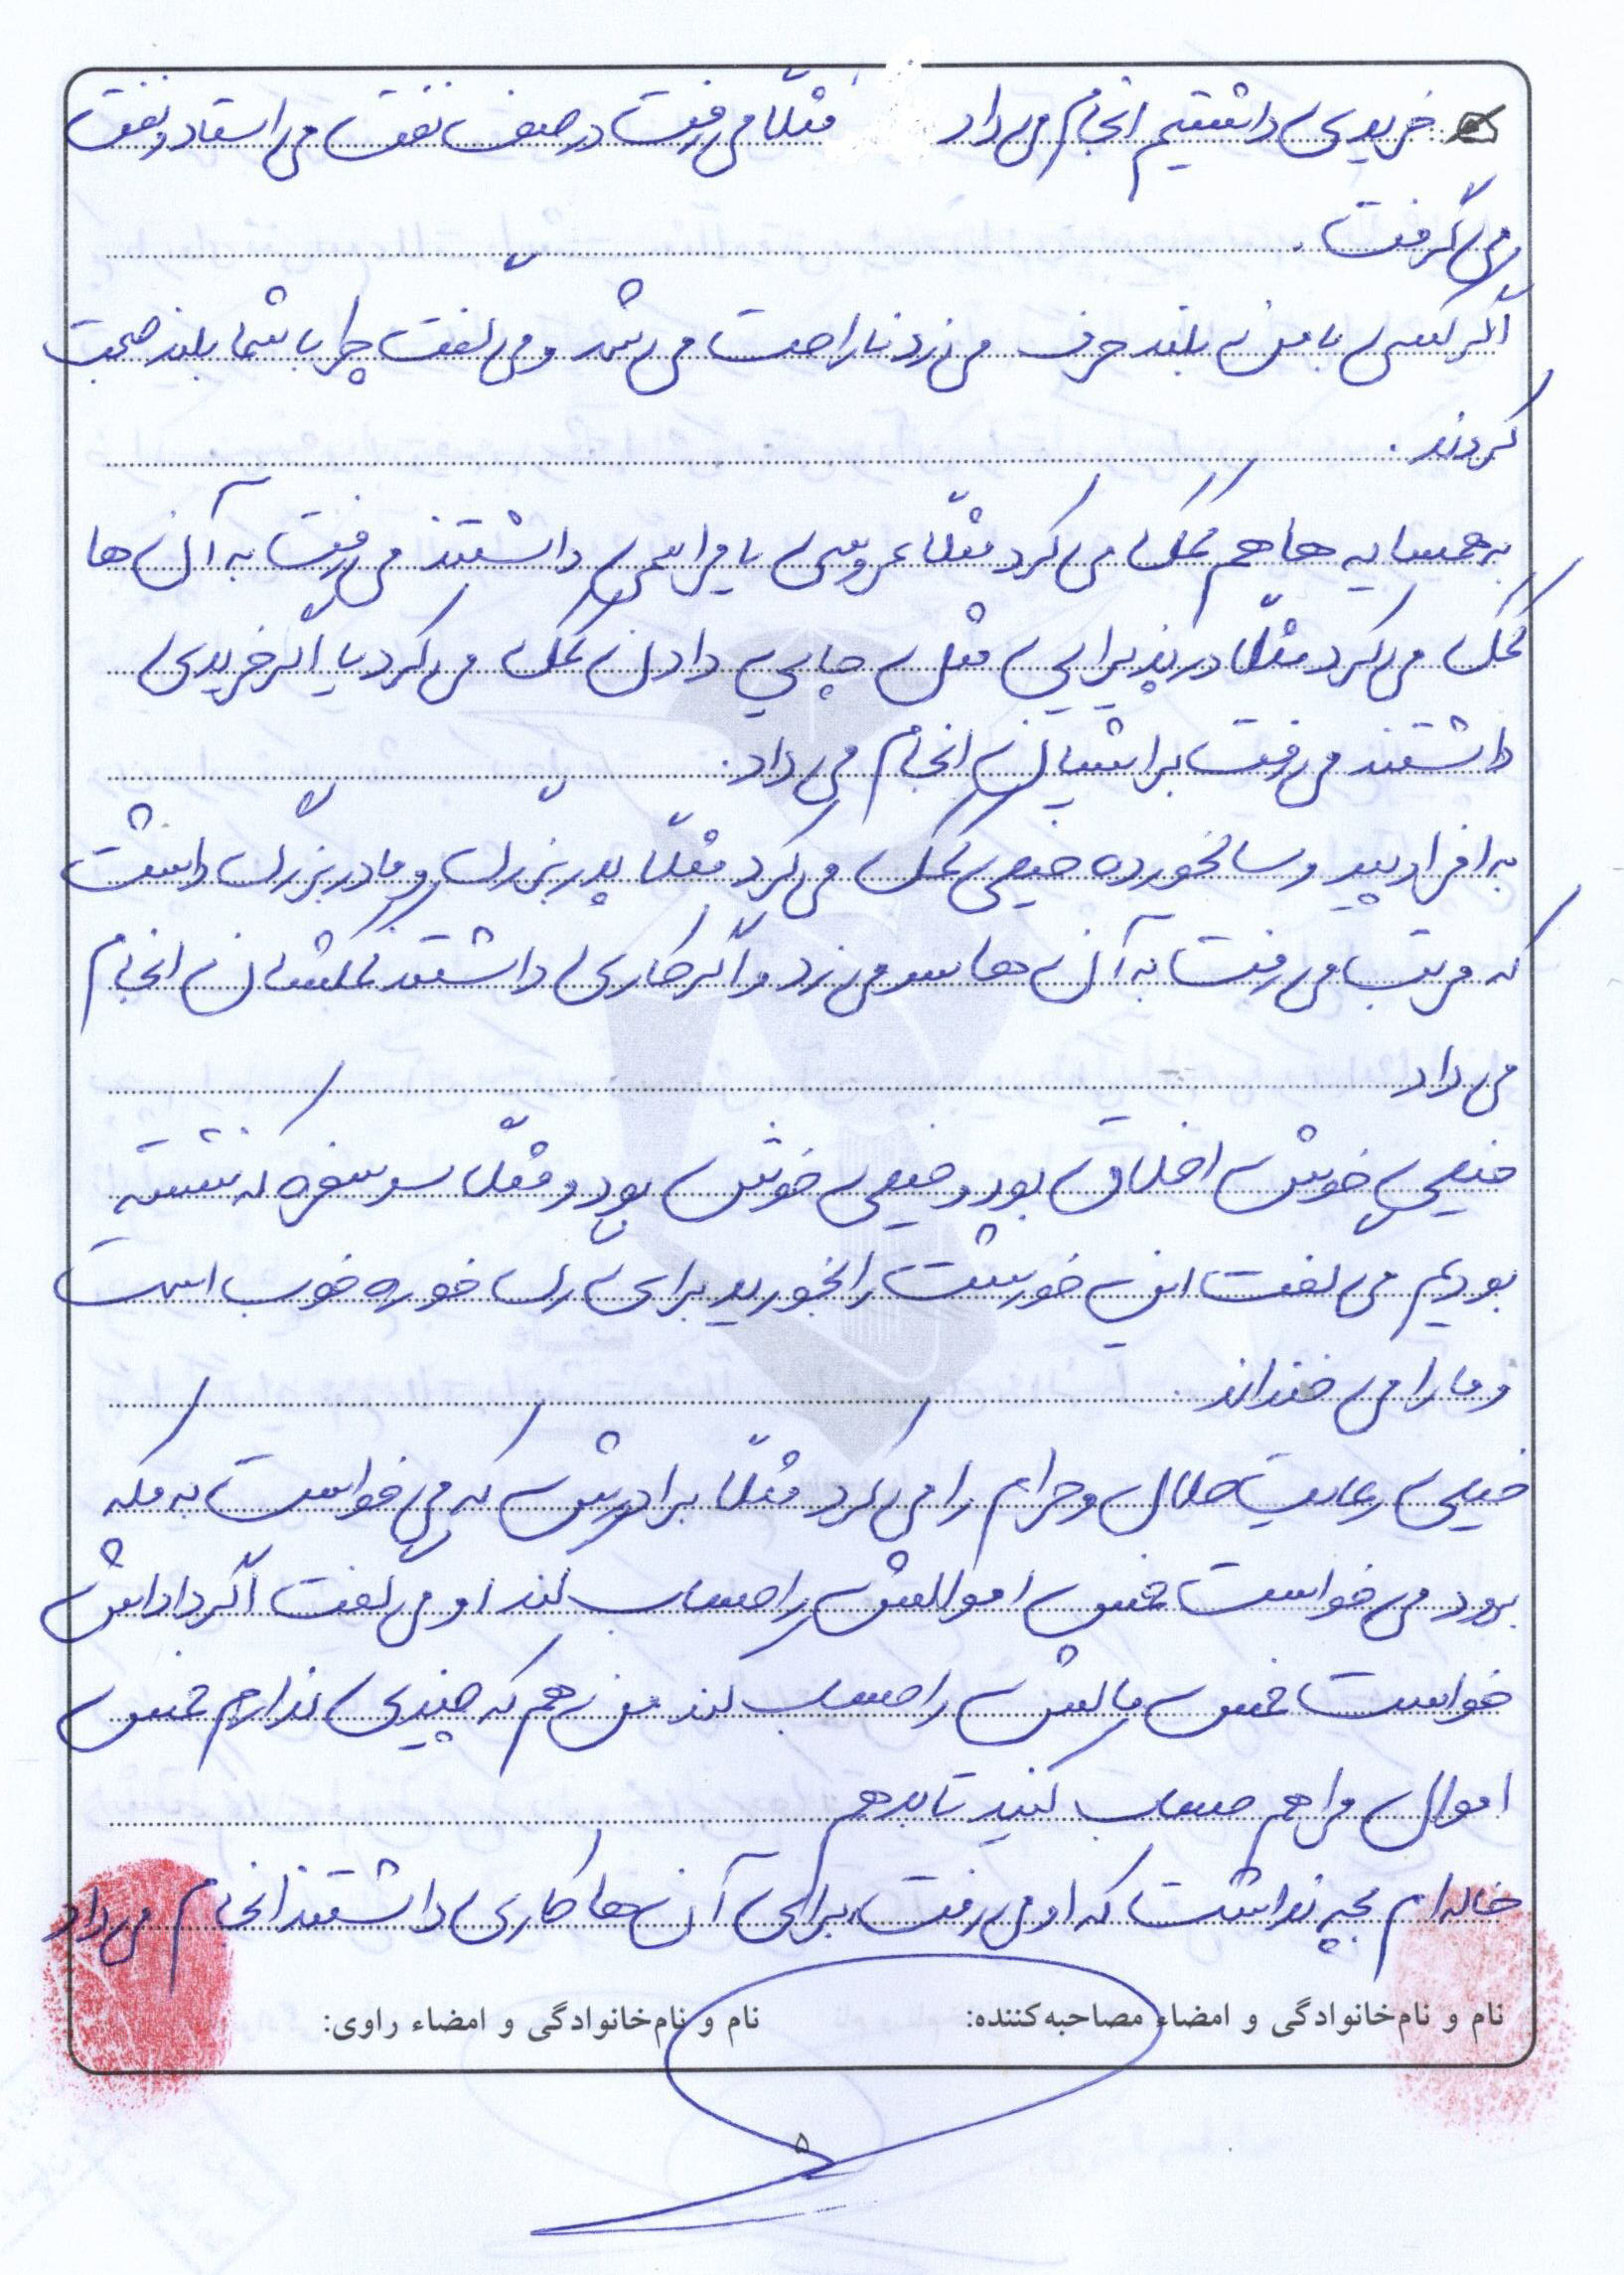 خریدی داشتیم انجام می‌داد مثلاً می‌رفت در صف نفت می‌استاد و نفت
می‌گرفت.
اگر کسی با من بلند حرف می‌زد ناراحت می‌شد و می‌گفت چرا با شما بلند صحبت
کردند.
به همسایه ها هم کمک می‌کرد مثلاً عروسی یا مراسمی داشتند می‌رفت به آن ها
کمک می‌کرد مثلاً در پذیرایی مثل چایی دادن کمک می‌کرد یا اگر خریدی
داشتند می‌رفت براشان انجام می‌داد.
به افراد پیر و سالخورده خیلی کمک می‌کرد مثلاً پدربزرگ و مادربزرگ داشت
که مرتب می‌رفت به آن ها سر می‌زد و اگر کاری داشتند کمکشان انجام
می‌داد
خیلی خوش اخلاق بود و خیلی خوش بود و مثلاً سر سفره که نشسته
بودیم می‌گفت این خورشت را بخورید برای رگ خوره خوب است
و ما را می‌خنداند.
خیلی رعایت حلال و حرام را می‌کرد مثلاً برادرش که می‌خواست به مکه
برود می‌خواست خمس اموالش را حساب کند او می‌گفت اگر داداش
خواست خمس مالش را حساب کند من هم که چیزی ندارم خمس
اموال مرا هم حساب کنید تا بدهم
خاله‌ام بچه نداشت که او می‌رفت، برای آن ها کاری داشتند انجام می‌داد
نام و نام‌خانوادگی و امضاء مصاحبه‌کننده: نام و نام‌خانوادگی و امضاء راوی:
۵